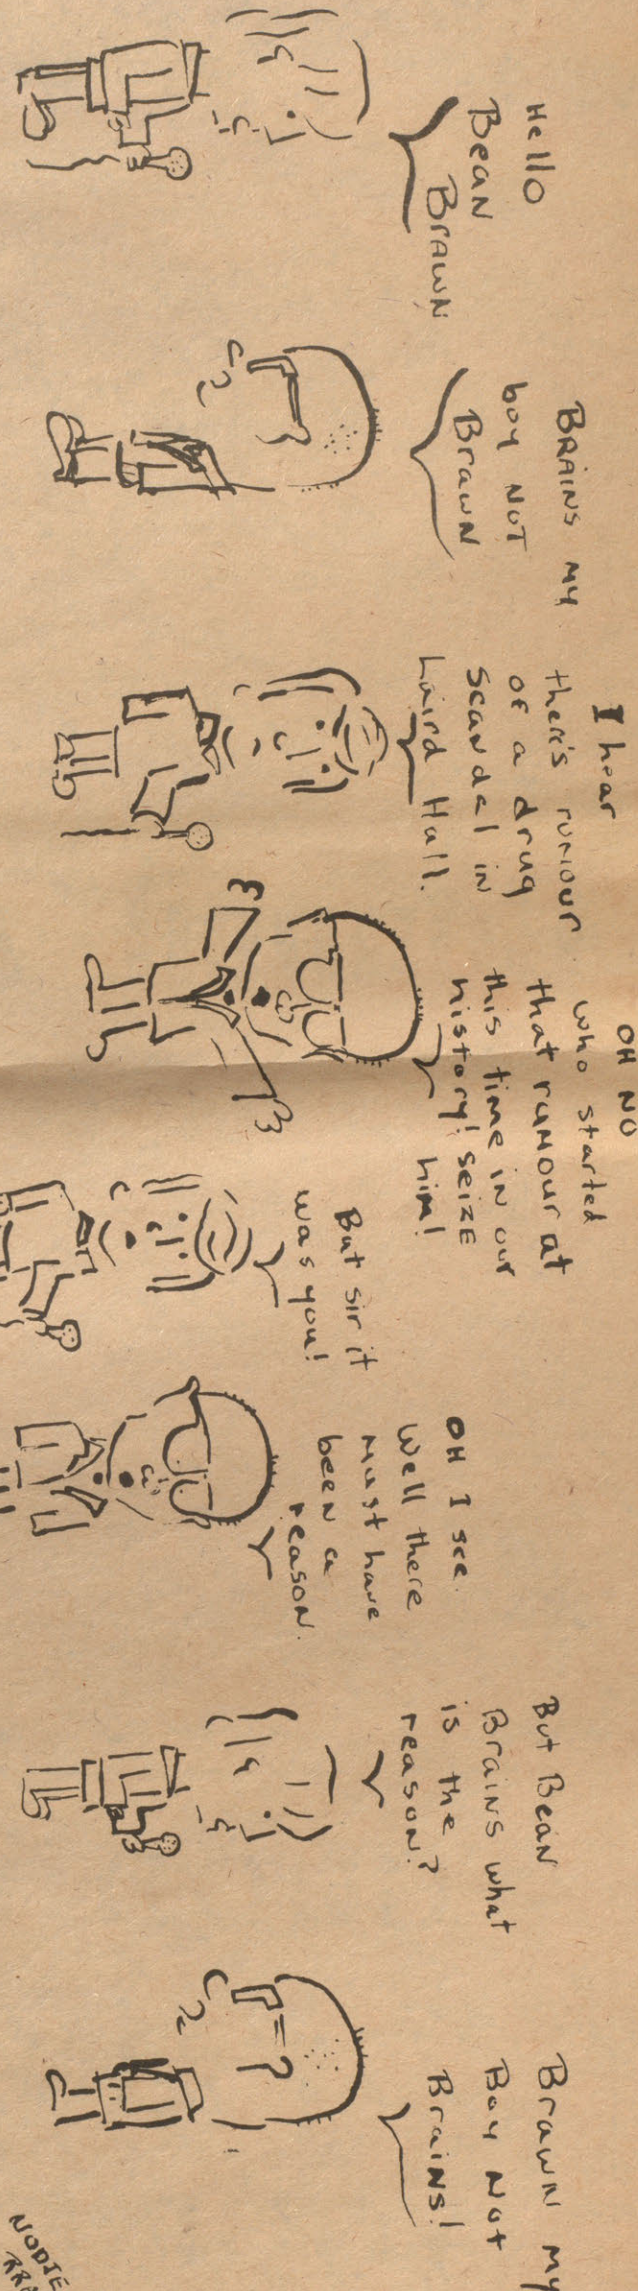 Hello
Bean
Brawn
Brains my
boy not
Brawn
I hear
there's rumour
of a drug
scandel in
Laird Hall.
OH NO
who started
that rumour at
this time in our
history! seize
him!
But sir it
was you!
OH I see.
Well there
must have
been a
reason.
But Bean
Brains what
is the
reason?
Brawn my
Boy Not
Brains!
NODIE